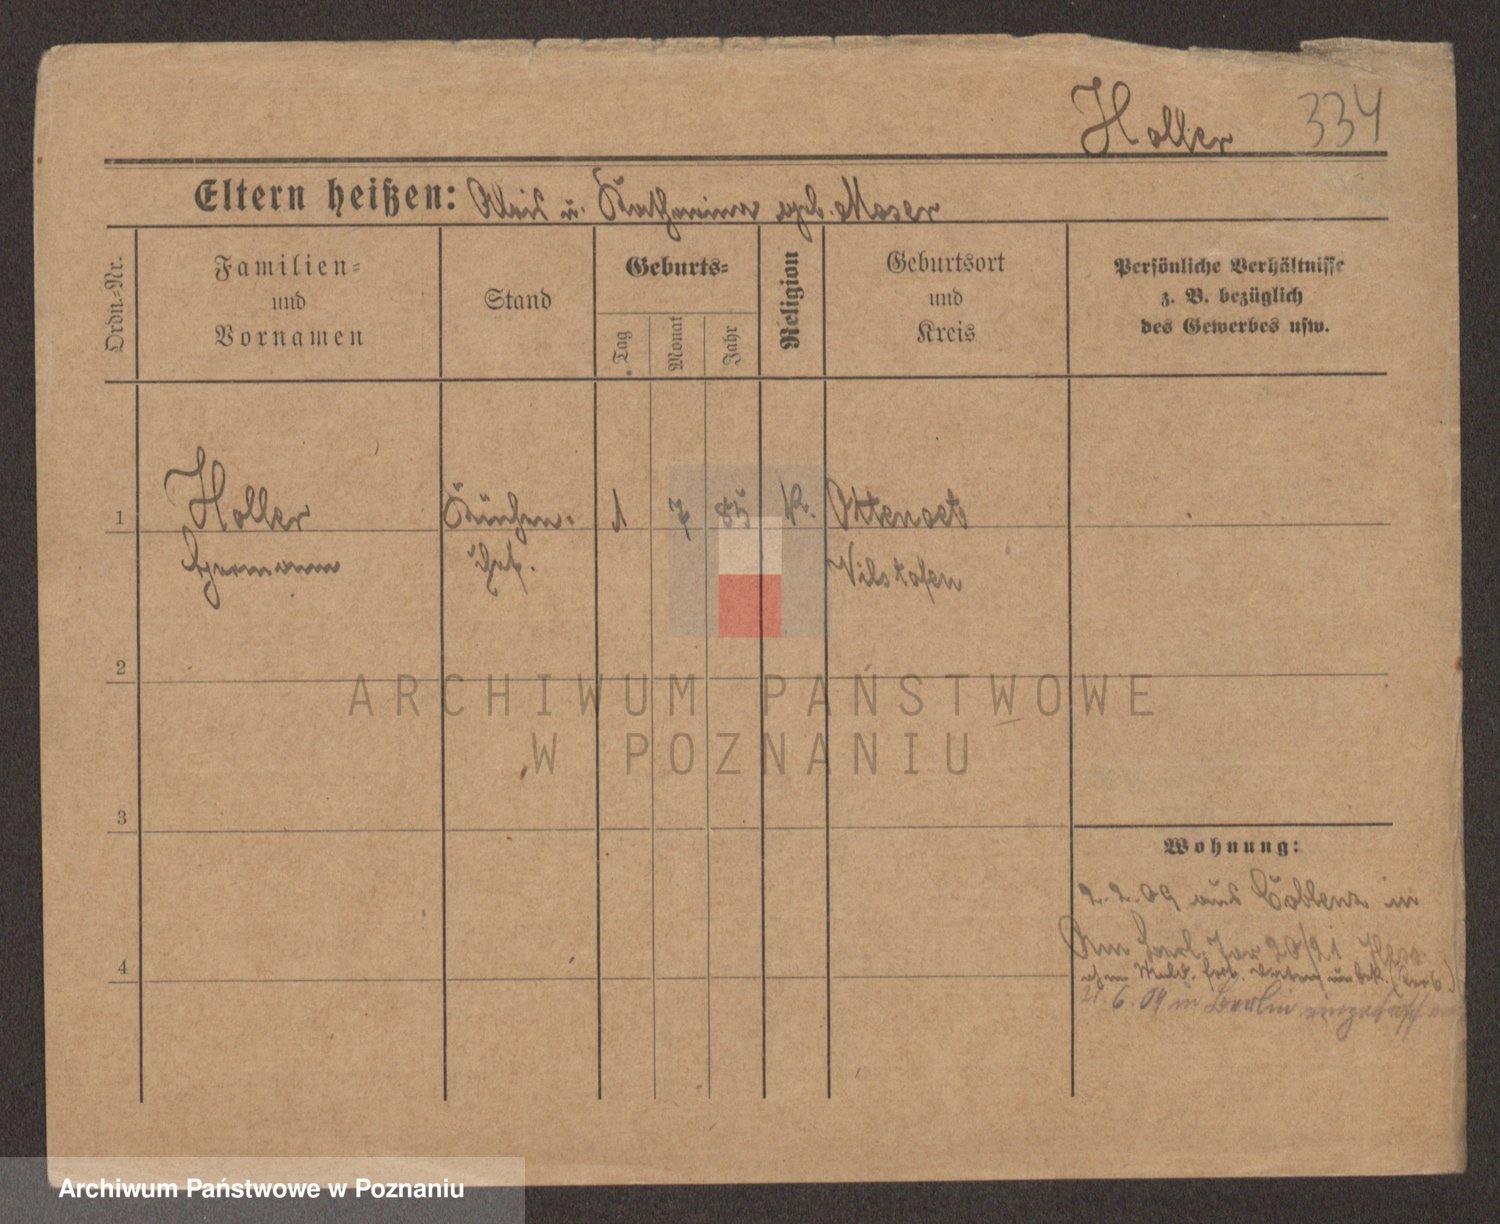 Holler 334
Eltern heißen: Alois u. Katharina geb. Moser
Ordn.-Nr.
Familien-
und
Vornamen
Stand
Geburts-
Tag
Monat
Jahr
Religion
Geburtsort
und
Kreis
Persönliche Verhältnisse
z. B. bezüglich
des Gewerbes usw.
1 Holler Küchen- 1 7 85 k.
Hermann chef. Vilshofen
2
3
4
Wohnung:
2.2.09 aus Coblenz in
Am Berl. Tor 20/21
21.6.09 in Berlin
ARCHIWUM PAŃSTWOWE
W POZNANIU
Archiwum Państwowe w Poznaniu